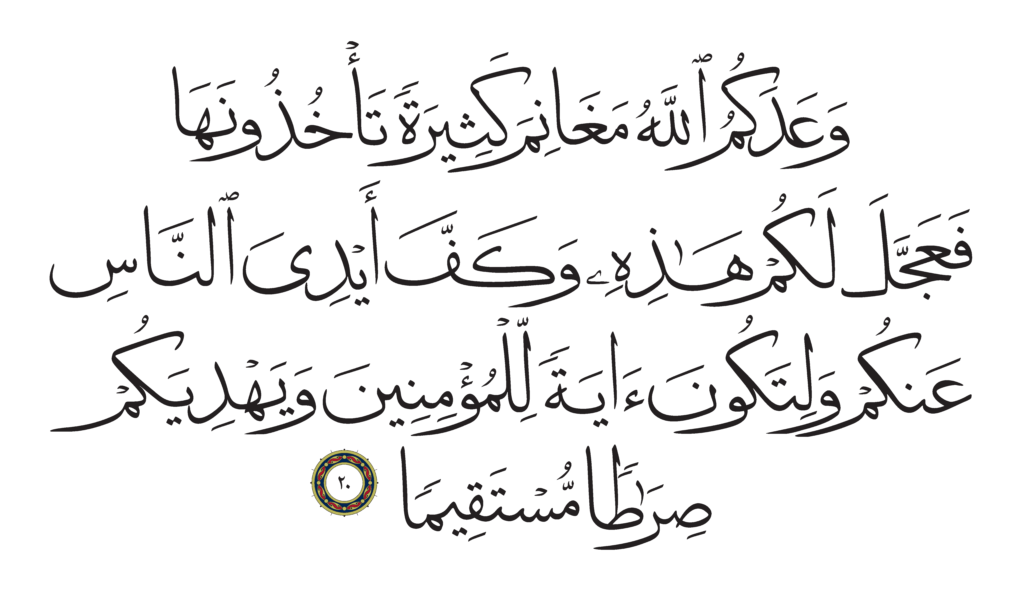 وَعَدَكُمُ ٱللَّهُ مَغَانِمَ كَثِيرَةً تَأۡخُذُونَهَا
فَعَجَّلَ لَكُمۡ هَٰذِهِۦ وَكَفَّ أَيۡدِيَ ٱلنَّاسِ
عَنكُمۡ وَلِتَكُونَ ءَايَةً لِّلۡمُؤۡمِنِينَ وَيَهۡدِيَكُمۡ
صِرَٰطًا مُّسۡتَقِيمًا ٢٠